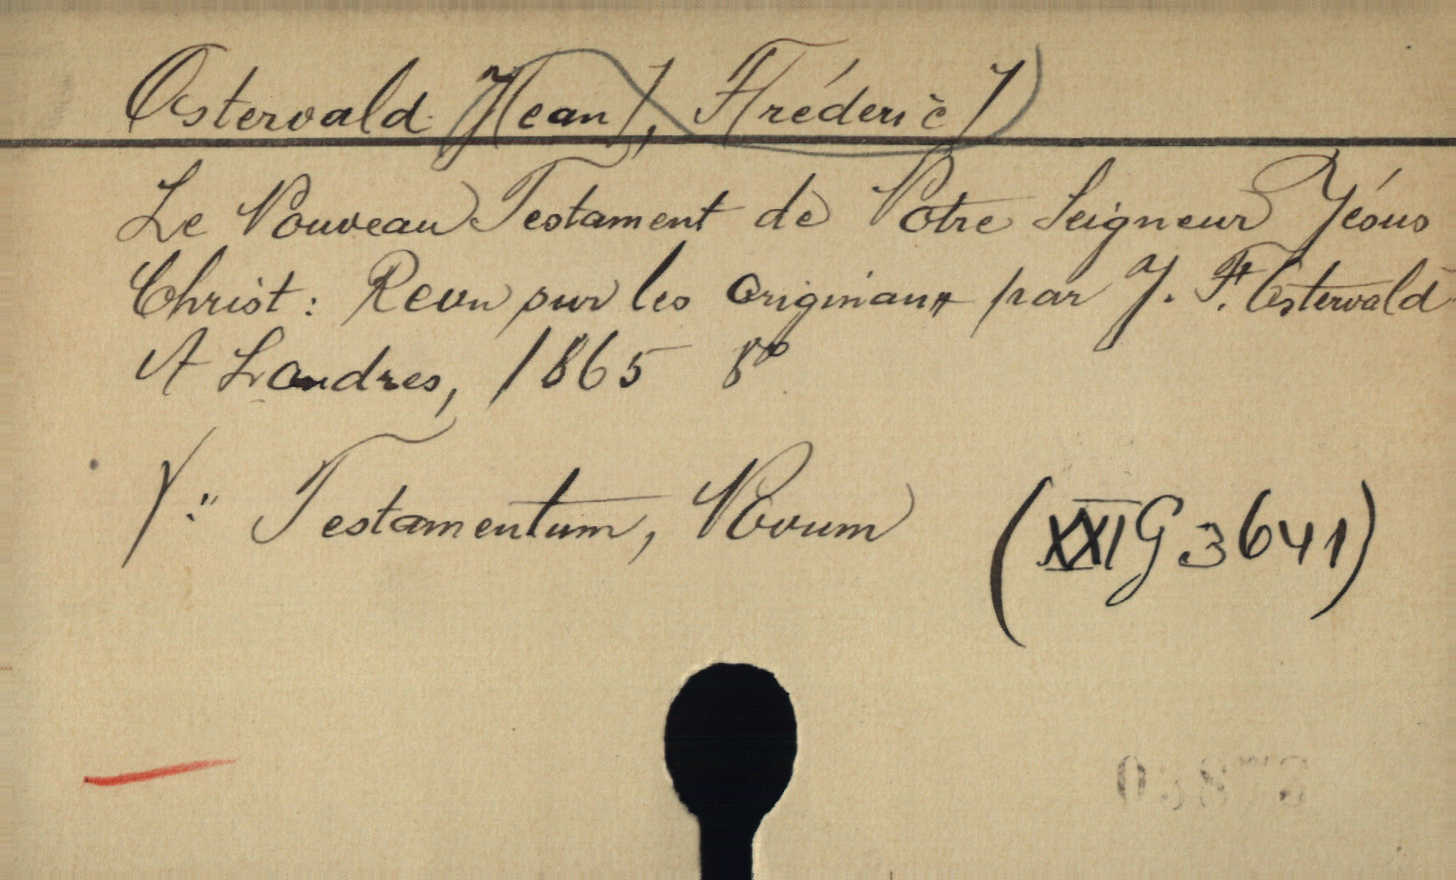 Ostervald J[ean], F[réderic]
Le Nouveau Testament de Notre Seigneur Jésus
Christ: Revu sur les originaux par J. F. Ostervald
A Londres, 1865 8°
V: Testamentum, Novum
(XXI G 3641)